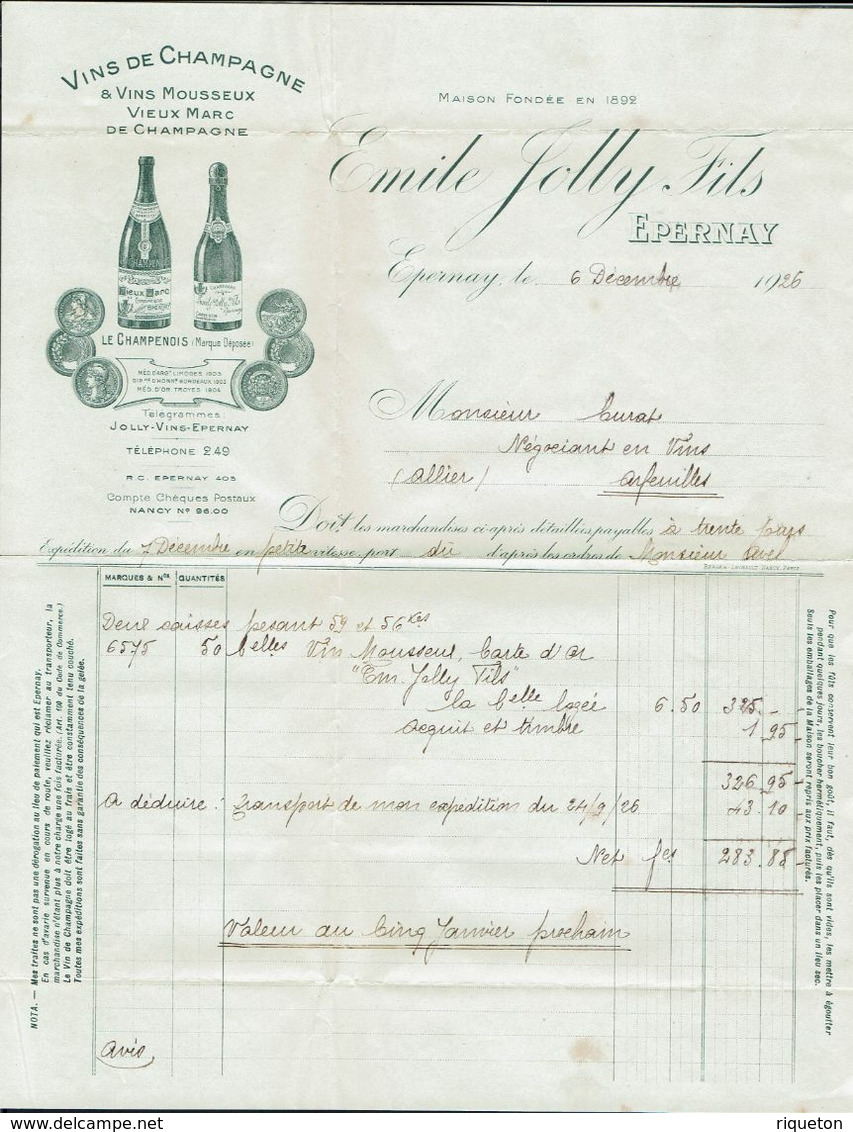 VINS DE CHAMPAGNE
& VINS MOUSSEUX
VIEUX MARC
DE CHAMPAGNE
MAISON FONDÉE EN 1892
Emile Jolly Fils
EPERNAY
Epernay, le 6 Décembre 1926
VIEUX MARC
LE CHAMPENOIS (Marque Déposée)
MÉD. D'ARGT LIMOGES 1903
DIP. D'HONNR BORDEAUX 1903
MÉD. D'OR TROYES 1904
Télégrammes:
JOLLY-VINS-EPERNAY
TÉLÉPHONE 249
R.C. EPERNAY 405
Compte Chèques Postaux
NANCY No 96.00
Monsieur Curat
Négociant en Vins
(Allier) Arfeuilles
Doit les marchandises ci-après détaillées payables à trente jours
Expédition du 7 Décembre en petite vitesse, port dû d'après les ordres de Monsieur
MARQUES & Nos QUANTITÉS
Deux caisses pesant 59 et 56 Kes
6575 50 Belles Vin Mousseux, Carte d'Or
"Em. Jolly Fils"
la Belle logée 6.50 325.-
acquit et timbre 1.95
326.95
A déduire: transport de mon expédition du 24/9/26 43.10
Net fcs 283.85
Valeur au Cinq Janvier prochain
Avis
NOTA. — Mes traites ne sont pas une dérogation au lieu de paiement qui est Epernay.
En cas d'avarie survenue en cours de route, veuillez réclamer au transporteur, la
marchandise n'étant plus à notre charge une fois facturée. (Art. 100 du Code de Commerce.)
Le Vin de Champagne doit être logé au frais et être constamment tenu couché.
Toutes mes expéditions sont faites sans garantie des conséquences de la gelée.
Pour que les fûts conservent leur bon goût, il faut, dès qu'ils sont vides, les mettre à égoutter
pendant quelques jours, les boucher hermétiquement, puis les placer dans un lieu sec.
Seuls les emballages de la Maison seront repris aux prix facturés.
delcampe.net
riqueton